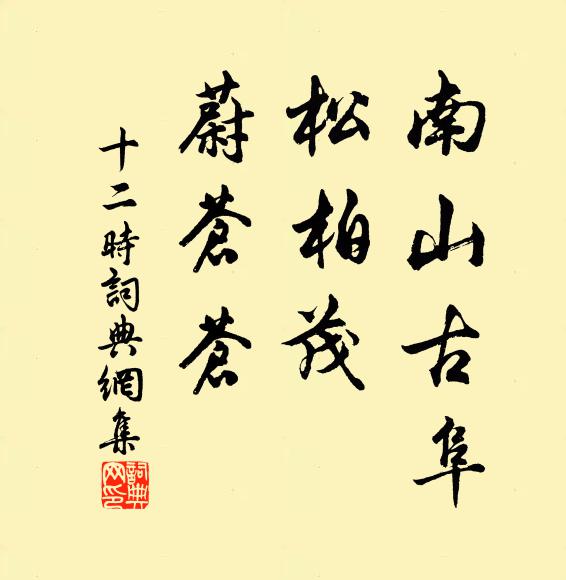 南山古阜
松柏茂
蔚蒼蒼
十二時詞典網集
詞典网印